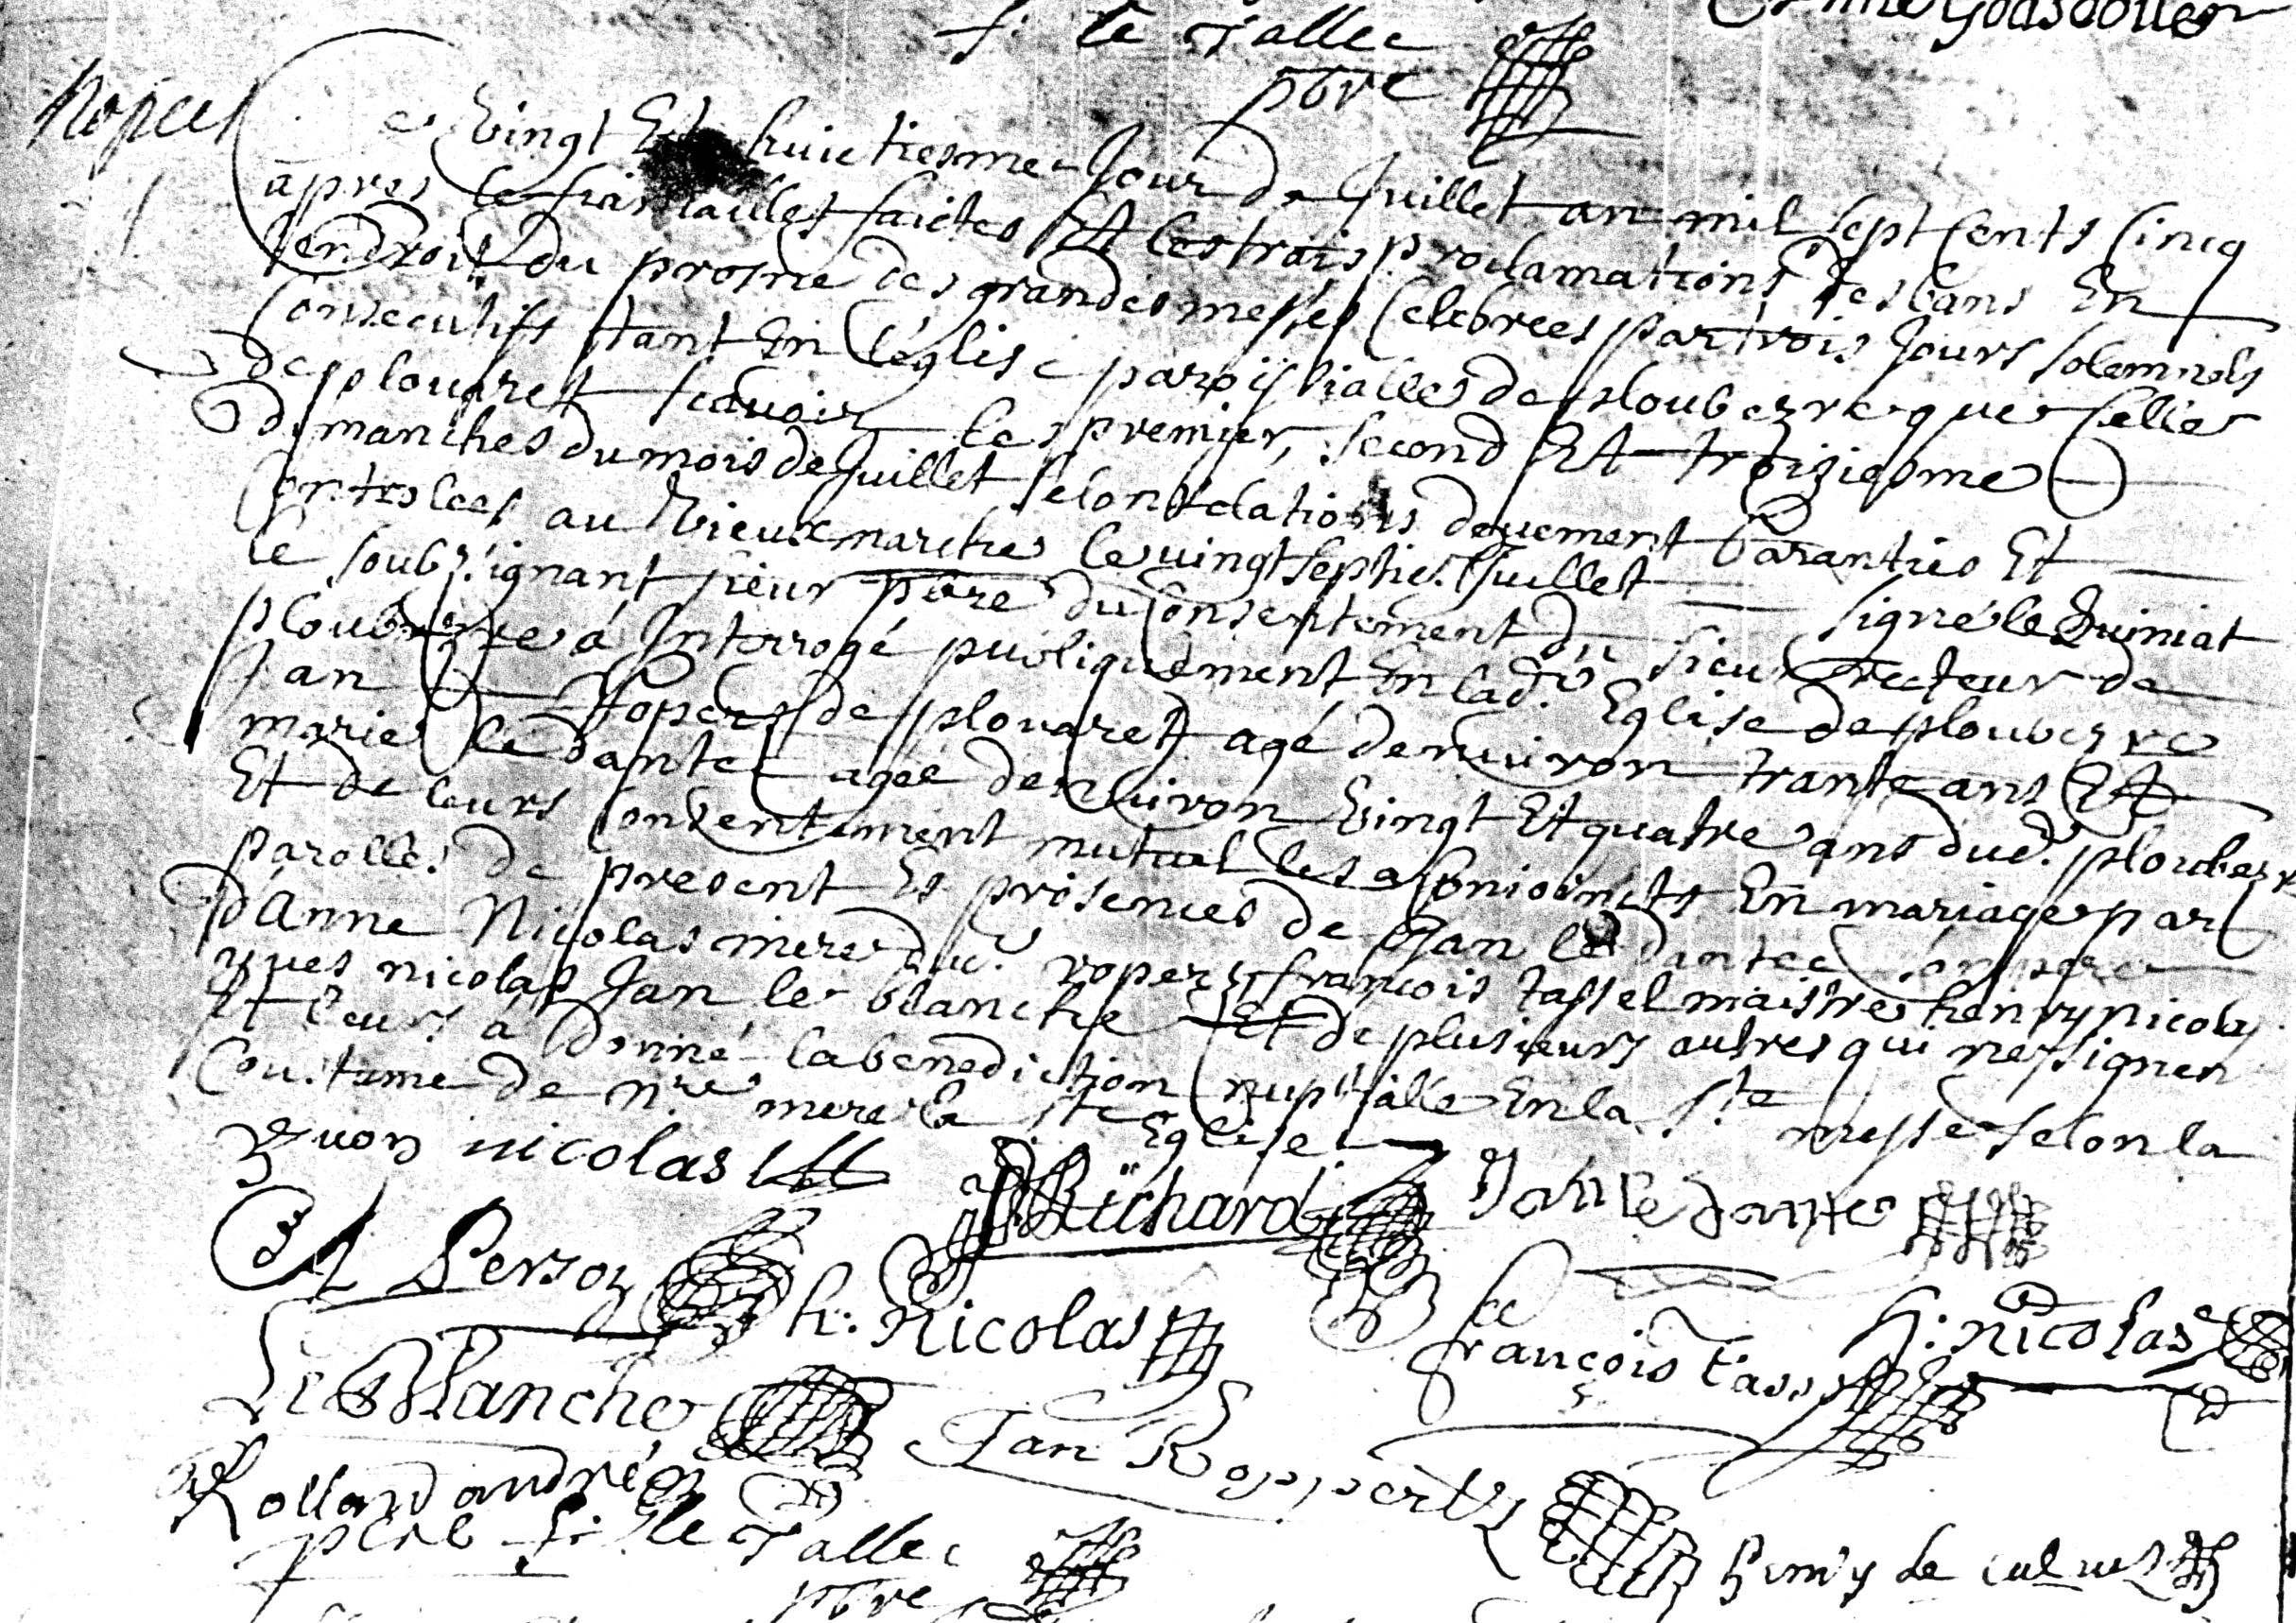 f. le Tallec
pbre
Nopces
Ce Vingt Et huictiesme Jour de Juillet an mil sept Cents Cincq
apres les fiansailles faictes Et les trois proclamations des bans En
Lendroit du prosne des grandes messes Celebrees par trois Jours solemnels
Consecutifs tant En l'église paroissialles de ploubezre que Celle
de plouaret scauoir les premier, second Et troiziesme
dimanches du mois de Juillet selon relations deuement Garanties Et
Controlees au Vieux marche le vingt septie. Juillet signé le Quiniat
le soubzignant sieur pbre du Consentement du sieur recteur de
ploubezre a Interrogé publiquement En lad. Eglise de ploubezre
Jan Ropers de plouaret agé denuiron trante ans Et
marie le dantec agee denuiron Vingt Et quatre ans dud. ploubezre
Et de leurs Consentement mutuel les a Conioincts En mariage par
parolles de present Es présences de Jan le dantec son pere
d'Anne Nicolas mere dud. roperz françois tassel maistre henry nicolas
yues nicolas Jan le blanche Et de plusieurs autres qui ne signen
Et leurs a donné la benediction nuptialle En la ste messe selon la
Coustume de nre mere la ste Eglise
yuon nicolas
Richard
Jan le dantec
Perzon
h: Nicolas
françois tassel
h: nicolas
Le Blanche
Jan Roppertz
Rolland andré
f. le Tallec
pbre